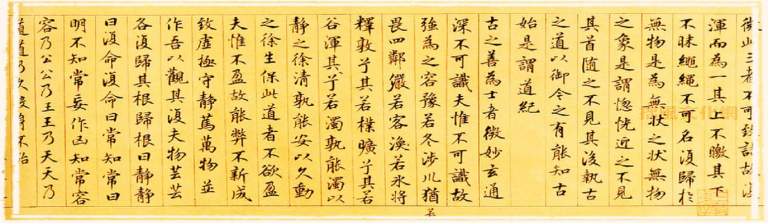 微此三者不可致詰故
渾而為一其上不皦其下
不昧繩繩不可名復歸於
無物是為無狀之狀無物
之象是謂惚恍迎之不見
其首隨之不見其後執古
之道以御今之有能知古
始是謂道紀
古之善為士者微妙玄通
深不可識夫惟不可識故
強為之容豫若冬涉川猶
若
畏四鄰儼若客渙若冰將
釋敦兮其若樸曠兮其若
谷渾其兮若濁孰能濁以
靜之徐清孰能安以久動
之徐生保此道者不欲盈
夫惟不盈故能弊不新成
致虛極守靜篤萬物並
作吾以觀其復夫物芸芸
各復歸其根歸根曰靜靜
曰復命復命曰常知常曰
明不知常妄作凶知常容
容乃公公乃王王乃天天乃
道道乃久沒身不殆